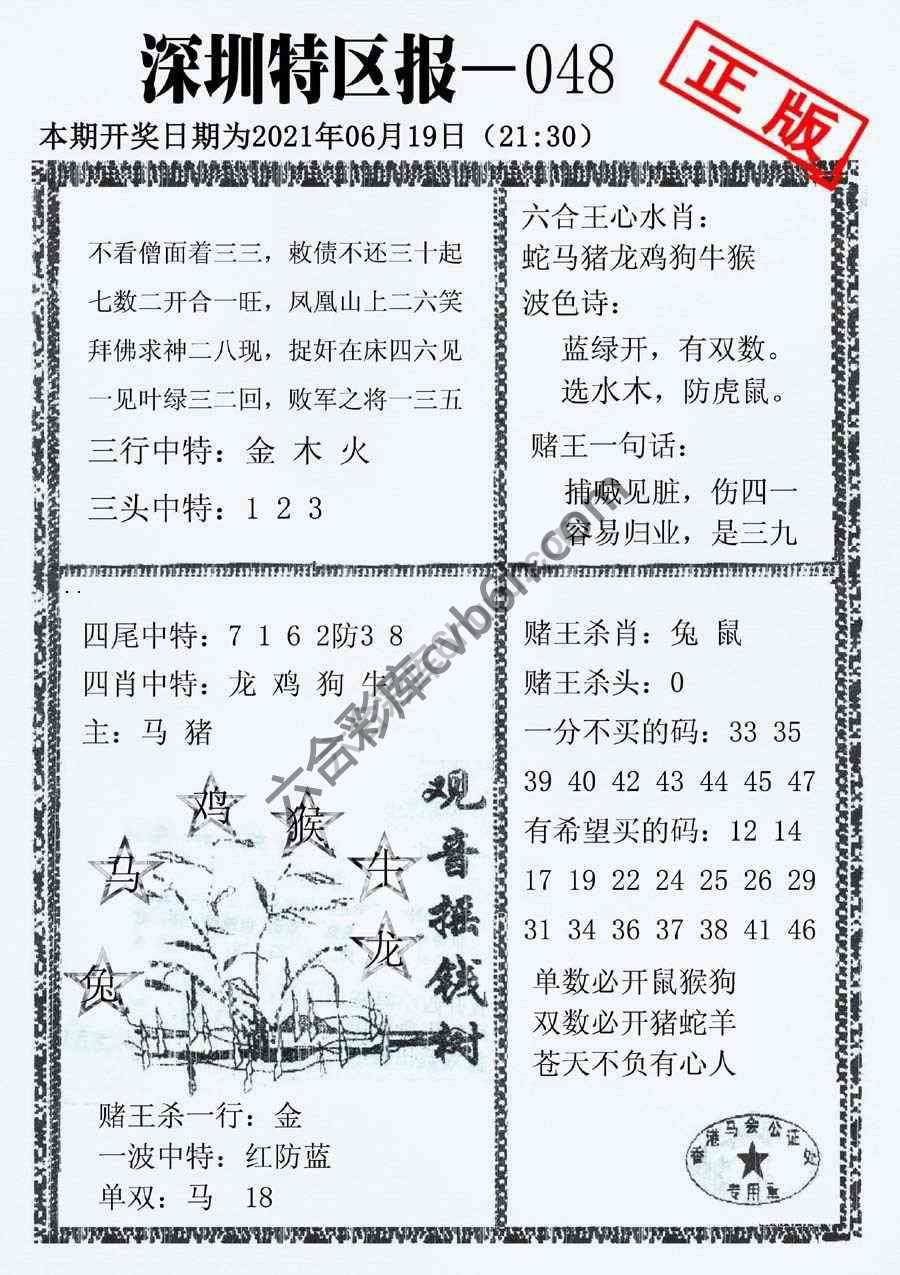 深圳特区报—048
正版
本期开奖日期为2021年06月19日（21:30）
不看僧面着三三，敕债不还三十起
七数二开合一旺，凤凰山上二六笑
拜佛求神二八现，捉奸在床四六见
一见叶绿三二回，败军之将一三五
三行中特：金 木 火
三头中特：1 2 3
六合王心水肖：
蛇马猪龙鸡狗牛猴
波色诗：
蓝绿开，有双数。
选水木，防虎鼠。
赌王一句话：
捕贼见脏，伤四一
容易归业，是三九
四尾中特：7 1 6 2防3 8
四肖中特：龙 鸡 狗 牛
主：马 猪
鸡
猴
马
牛
龙
兔
观音摇钱树
赌王杀一行：金
一波中特：红防蓝
单双：马 18
赌王杀肖：兔 鼠
赌王杀头：0
一分不买的码：33 35
39 40 42 43 44 45 47
有希望买的码：12 14
17 19 22 24 25 26 29
31 34 36 37 38 41 46
单数必开鼠猴狗
双数必开猪蛇羊
苍天不负有心人
香港马会公证处
专用章
六合彩库cvb6h.com